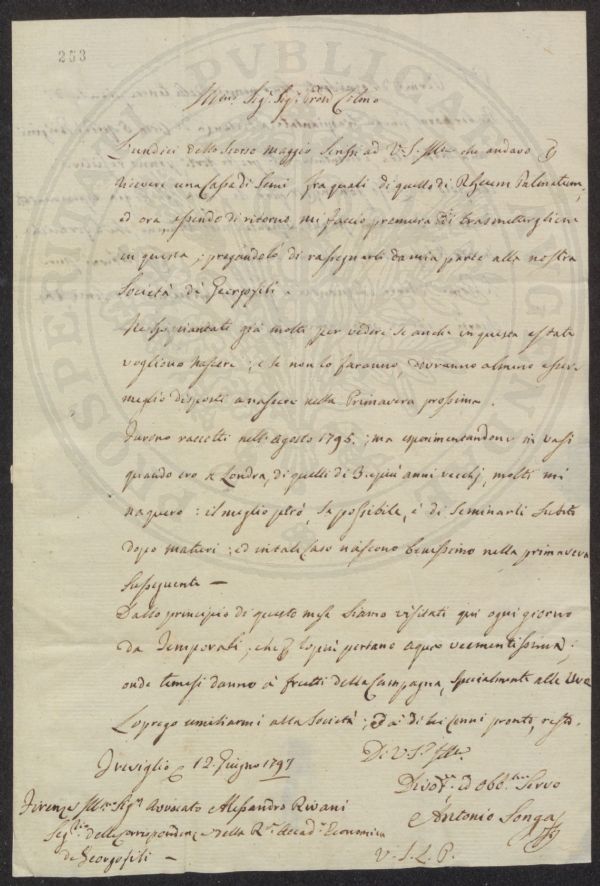 253
Illmo. Sigr. Sigr. Prôn Colmo
L'undici dello scorso Maggio scrissi ad V.S. Illma. che andavo
ricevere una Cassa di Semi, fra quali di quello di Rheum Palmatum,
ed ora essendo di ritorno, mi faccio premura di trasmettergliene
in questa; pregandola di rassegnarli da mia parte alla nostra
Società de' Georgofili.
Ne ho piantati già molti per vedere se anche in questa estate
vogliono nascere; e se non lo faranno, dovranno almeno esser
meglio disposti a nascere nella Primavera prossima.
Furono raccolti nell'Agosto 1795.; ma esperimentandone in vasi
quando ero a Londra, di quelli di 3. e più anni vecchj, molti mi
naquero: il meglio però, se possibile, è di seminarli subito
dopo maturi; ed in tal caso nascono benissimo nella primavera
susseguente —
Dallo principio di questo mese siamo visitati qui ogni giorno
da Temporali, che per lo più portano aqua veementissima;
onde temesi danno à frutti della Campagna, specialmente alle Uve
La prego umiliarmi alla Società; ed ai di lei cenni pronto, resto.
Di V.S. Illma.
Treviglio 12. Giugno 1797
Divomo. ed obbmo. Servo
Antonio Songa
Firenze Illmo. Sigr. Avvocato Alessandro Rivani
Segrio. delle Corrispondenze della Rl. Accada. Economica
de Georgofili —
V.S.L.P.
PUBLICAE
PROSPERITATI